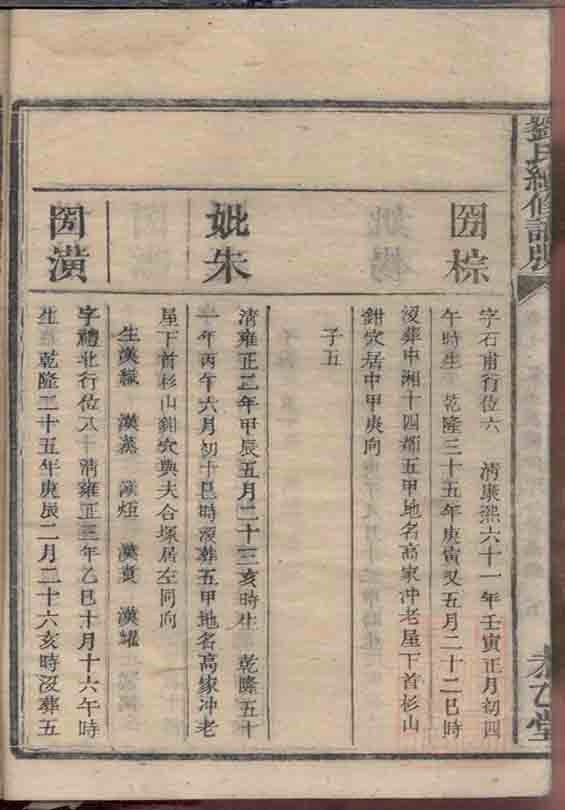 劉氏續修譜牒
國棕
字石甫行位六 清康熙六十一年壬寅正月初四
午時生 乾隆三十五年庚寅又五月二十二巳時
沒葬中湘十四都五甲地名高家冲老屋下首杉山
鉗穴居中甲庚向
子五
妣朱
清雍正二年甲辰五月二十三亥時生 乾隆五十
一年丙午六月初十巳時沒葬五甲地名高家冲老
屋下首杉山鉗穴與夫合塚居左同向
生漢嶽 漢蒸 漢炬 漢 漢耀
國潢
字禮北行位八 清雍正三年乙巳十月十六午時
生 乾隆二十五年庚辰二月二十六亥時沒葬五